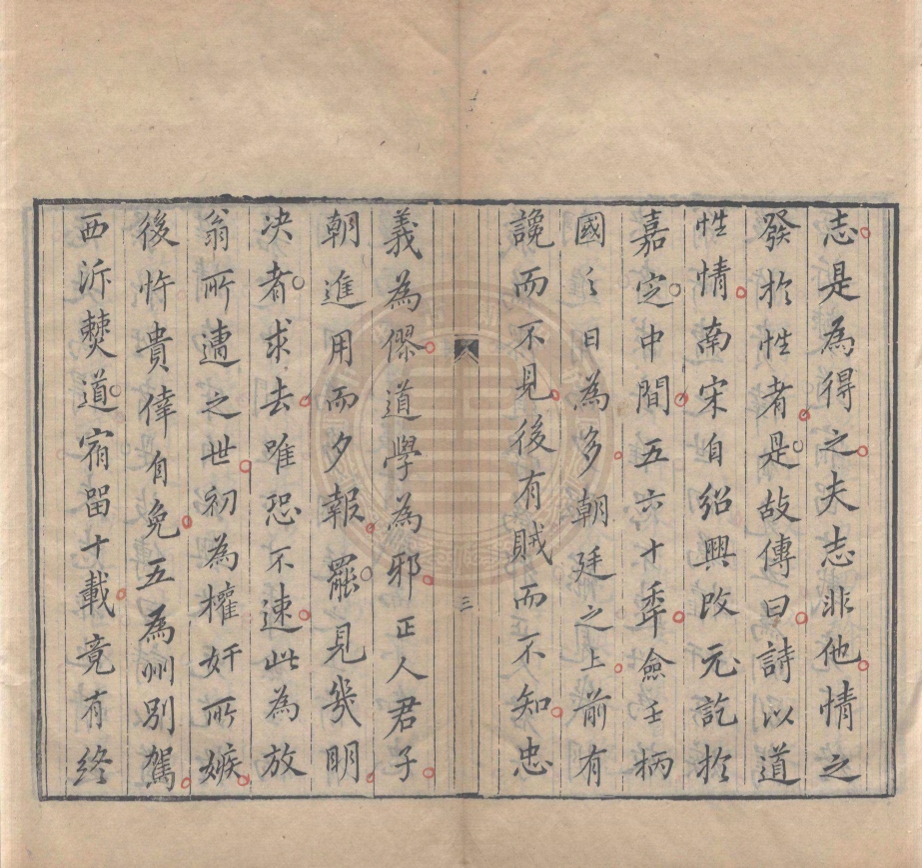 志是為得之夫志非他情之
發於性者是故傳曰詩以道
性情南宋自紹興改元訖於
嘉定中間五六十秊僉壬柄
國之日為多朝廷之上前有
讒而不見後有賊而不知忠
三
義為僇道學為邪正人君子
朝進用而夕報罷見幾明
决者求去唯恐不速此為放
翁所遭之世初為權奸所嫉
後忤貴倖自免五為州別駕
西泝僰道宿留十載竟有終